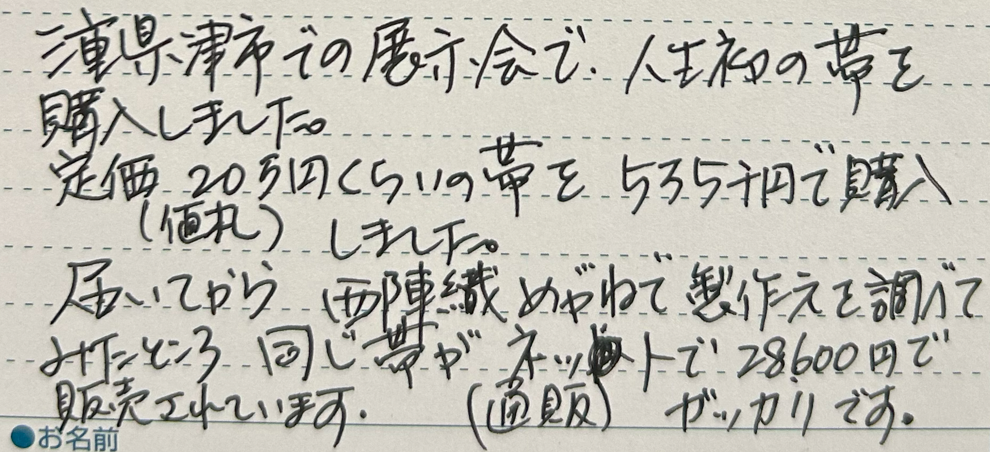 三重県津市での展示会で、人生初の帯を
購入しました。
定価20万円くらいの帯を 5万5千円で購入
(値札) しました。
届いてから 西陣織めがねで製作元を調べて
みたところ 同じ帯が ネットで28600円で
販売されています. (通販) ガッカリです。
●お名前